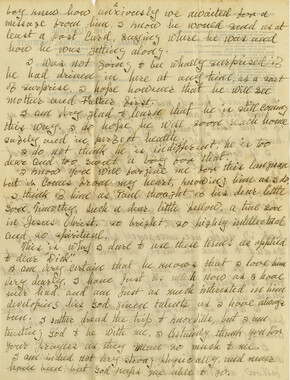 2
boy knew how anxiously we awaited for a
message from him I know he would send us at
least a Post Card, saying where he was and
how he was getting along.
I was not going to be wholly surprised if
he had dropped in here at any time, as a sort
of surprise. I hope however that he will see
mother and Father first.
I am very glad to learn that he is still coming
this way. I do hope he will soon reach home
safely and in perfect health.
I do not think he is indifferent, he is too
dear and too sweet a boy for that.
I know you will forgive me for this language
but it comes from my heart, knowing him as I do,
I think of him as Paul thought of his dear little
Son, Timothy, such a dear little fellow, a true son
in Jesus Christ, so bright, so highly intellectual
and so spiritual.
This is why I dare to use these terms as applied
to dear "Dick"
I am very certain that he knows that I love him
very dearly. I have just as much now as I have
ever had and am just as much interested in him
developing his God given talents as I have always
been. I rather dread the trip to , but I am
trusting God to be with me. I certainly thank you for
your prayers as they mean so much to me.
I am indeed not very strong physically, and never
have been but God helps me able to go.